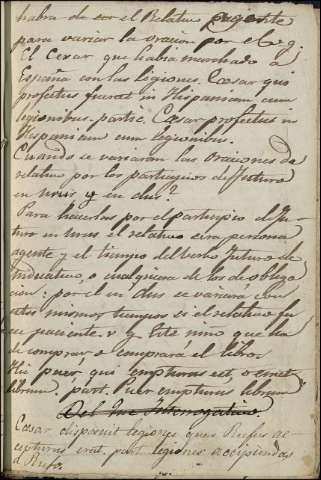 habra de ser el Relativo paciente
para variar la oracion por el v. g.
El Cesar que habia marchado á
España con las legiones Cæsar qui
profectus fuerat in Hispaniam cum
legionibus. partic. Cæsar profectus in
Hispaniam cum legionibus.
Cuando se variaran las oraciones de
relativo por los participios de futuro
en urus y en dus?
Para hacerlas por el participio de fu-
turo en urus el relativo sera persona
agente y el tiempo del verbo futuro de
Indicativo, o cualquiera de los de obliga
cion: por el en dus se variará con
estos mismos tiempos si el relativo fu
ere paciente. v. g este niño que ha
de comprar o comprará el libro
Hic puer qui empturus est, o erit
librum. part. Puer empturus librum
Del Interrogativo.
Cæsar disposuit legiones quas Rufus ac
cepturus erat. part legiones accipiendas
a Rufo.